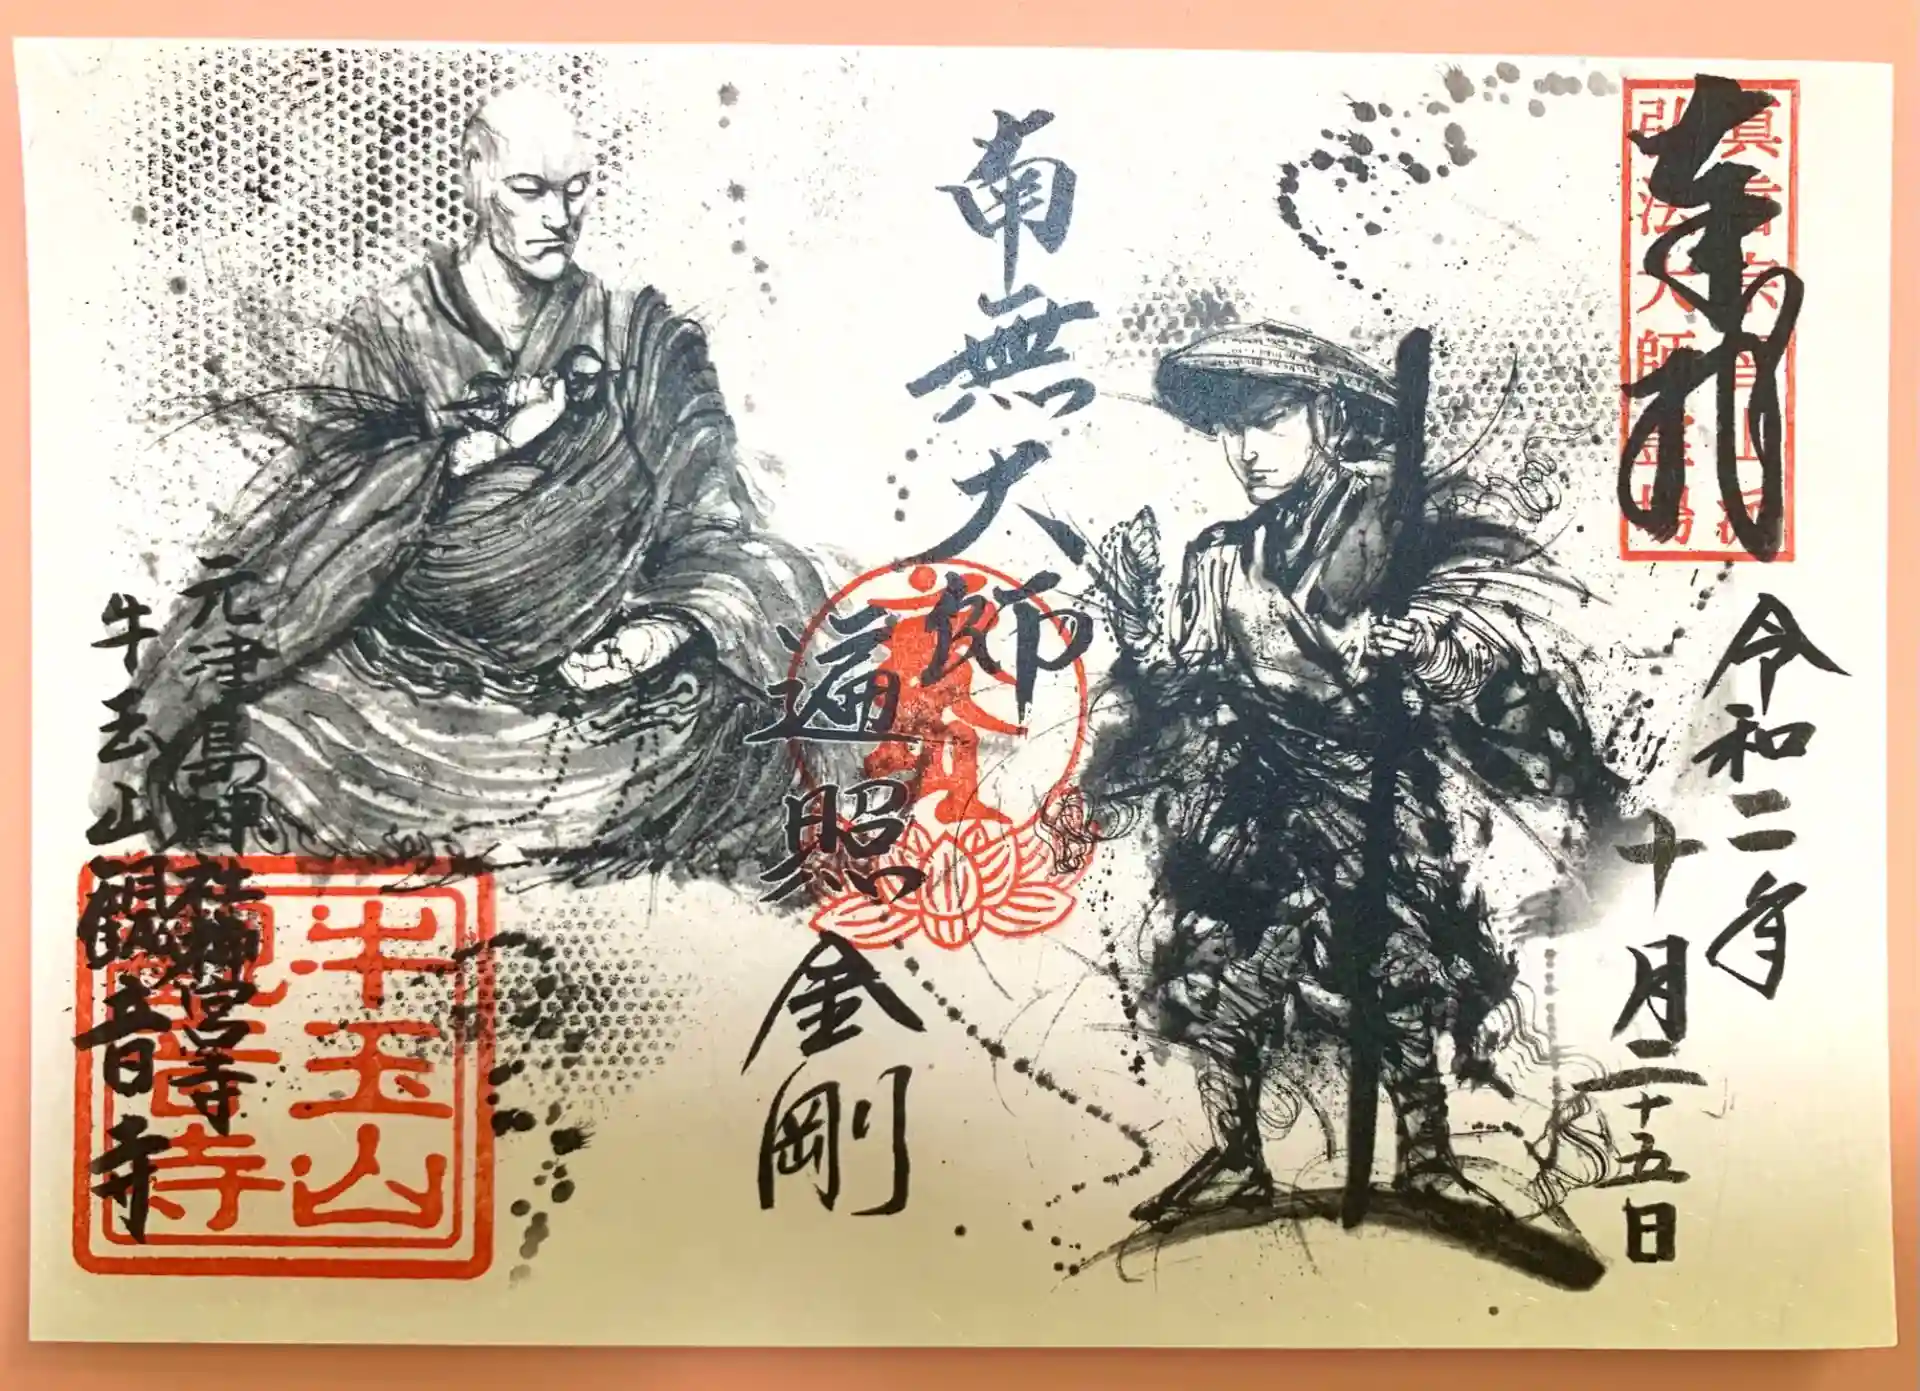 奉拝
真言宗
弘法大師霊場
令和二年
十月二十五日
南無大師
遍照金剛
元津島神社神宮寺
牛玉山観音寺
牛玉山
観音寺